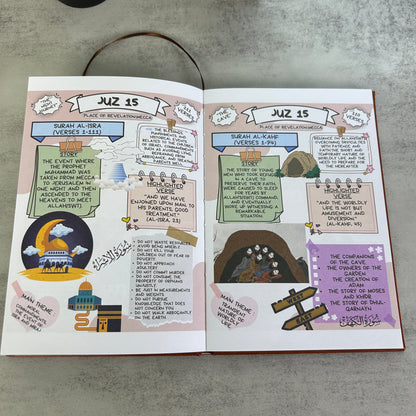 JUZ 15
PLACE OF REVELATION:MECCA
THE NIGHT JOURNEY
111 VERSES
SURAH AL-ISRA
(VERSES 1-111)
STORY
THE EVENT WHERE
THE PROPHET
MUHAMMAD WAS
TAKEN FROM MECCA
TO JERUSALEM IN
ONE NIGHT AND THEN
ASCENDED TO THE
HEAVENS TO MEET
ALLAH(SWT).
HIGHLIGHTED
VERSE
"AND WE HAVE
ENJOINED UPON MAN, TO
HIS PARENTS, GOOD
TREATMENT."
(AL-ISRA, 23)
DO NOT WASTE RESOURCES
AVOID BEING MISERLY
DO NOT KILL YOUR
CHILDREN OUT OF FEAR OF
POVERTY
DO NOT APPROACH
ADULTERY
DO NOT COMMIT MURDER
DO NOT CONSUME THE
PROPERTY OF ORPHANS
UNJUSTLY
BE JUST IN MEASUREMENTS
AND WEIGHTS
DO NOT PURSUE
KNOWLEDGE THAT DOES
NOT CONCERN YOU
DO NOT WALK ARROGANTLY
ON THE EARTH
MAIN THEME
JUZ 15
PLACE OF REVELATION:MECCA
"THE CAVE"
110 VERSES
SURAH AL-KAHF
(VERSES 1-74)
STORY
THE STORY OF YOUNG
MEN WHO TOOK REFUGE
IN A CAVE TO
PRESERVE THEIR FAITH,
WERE CAUSED TO SLEEP
FOR YEARS BY
ALLAH(SWT) COMMAND,
AND EVENTUALLY
WOKE UP WITNESSING A
REMARKABLE
SITUATION.
RELIANCE ON ALLAH(SWT),
OVERCOMING DIFFICULTIES
WITH PATIENCE AND
FAITH,THE SHORT AND
TEMPORARY NATURE OF
WORLDLY LIFE AND THE
NEED TO PREPARE FOR
THE HEREAFTER.
HIGHLIGHTED
VERSE
"AND THE WORLDLY
LIFE IS NOT BUT
AMUSEMENT AND
DIVERSION."
(AL-KAHF, 45)
THE COMPANIONS
OF THE CAVE
THE OWNERS OF THE
GARDEN
THE CREATION OF
ADAM
THE STORY OF MOSES
AND KHIDR
THE STORY OF DHUL-
QARNAYN
WEST
EAST
MAIN THEME
TRANSIENT
NATURE OF
WORLDLY
LIFE